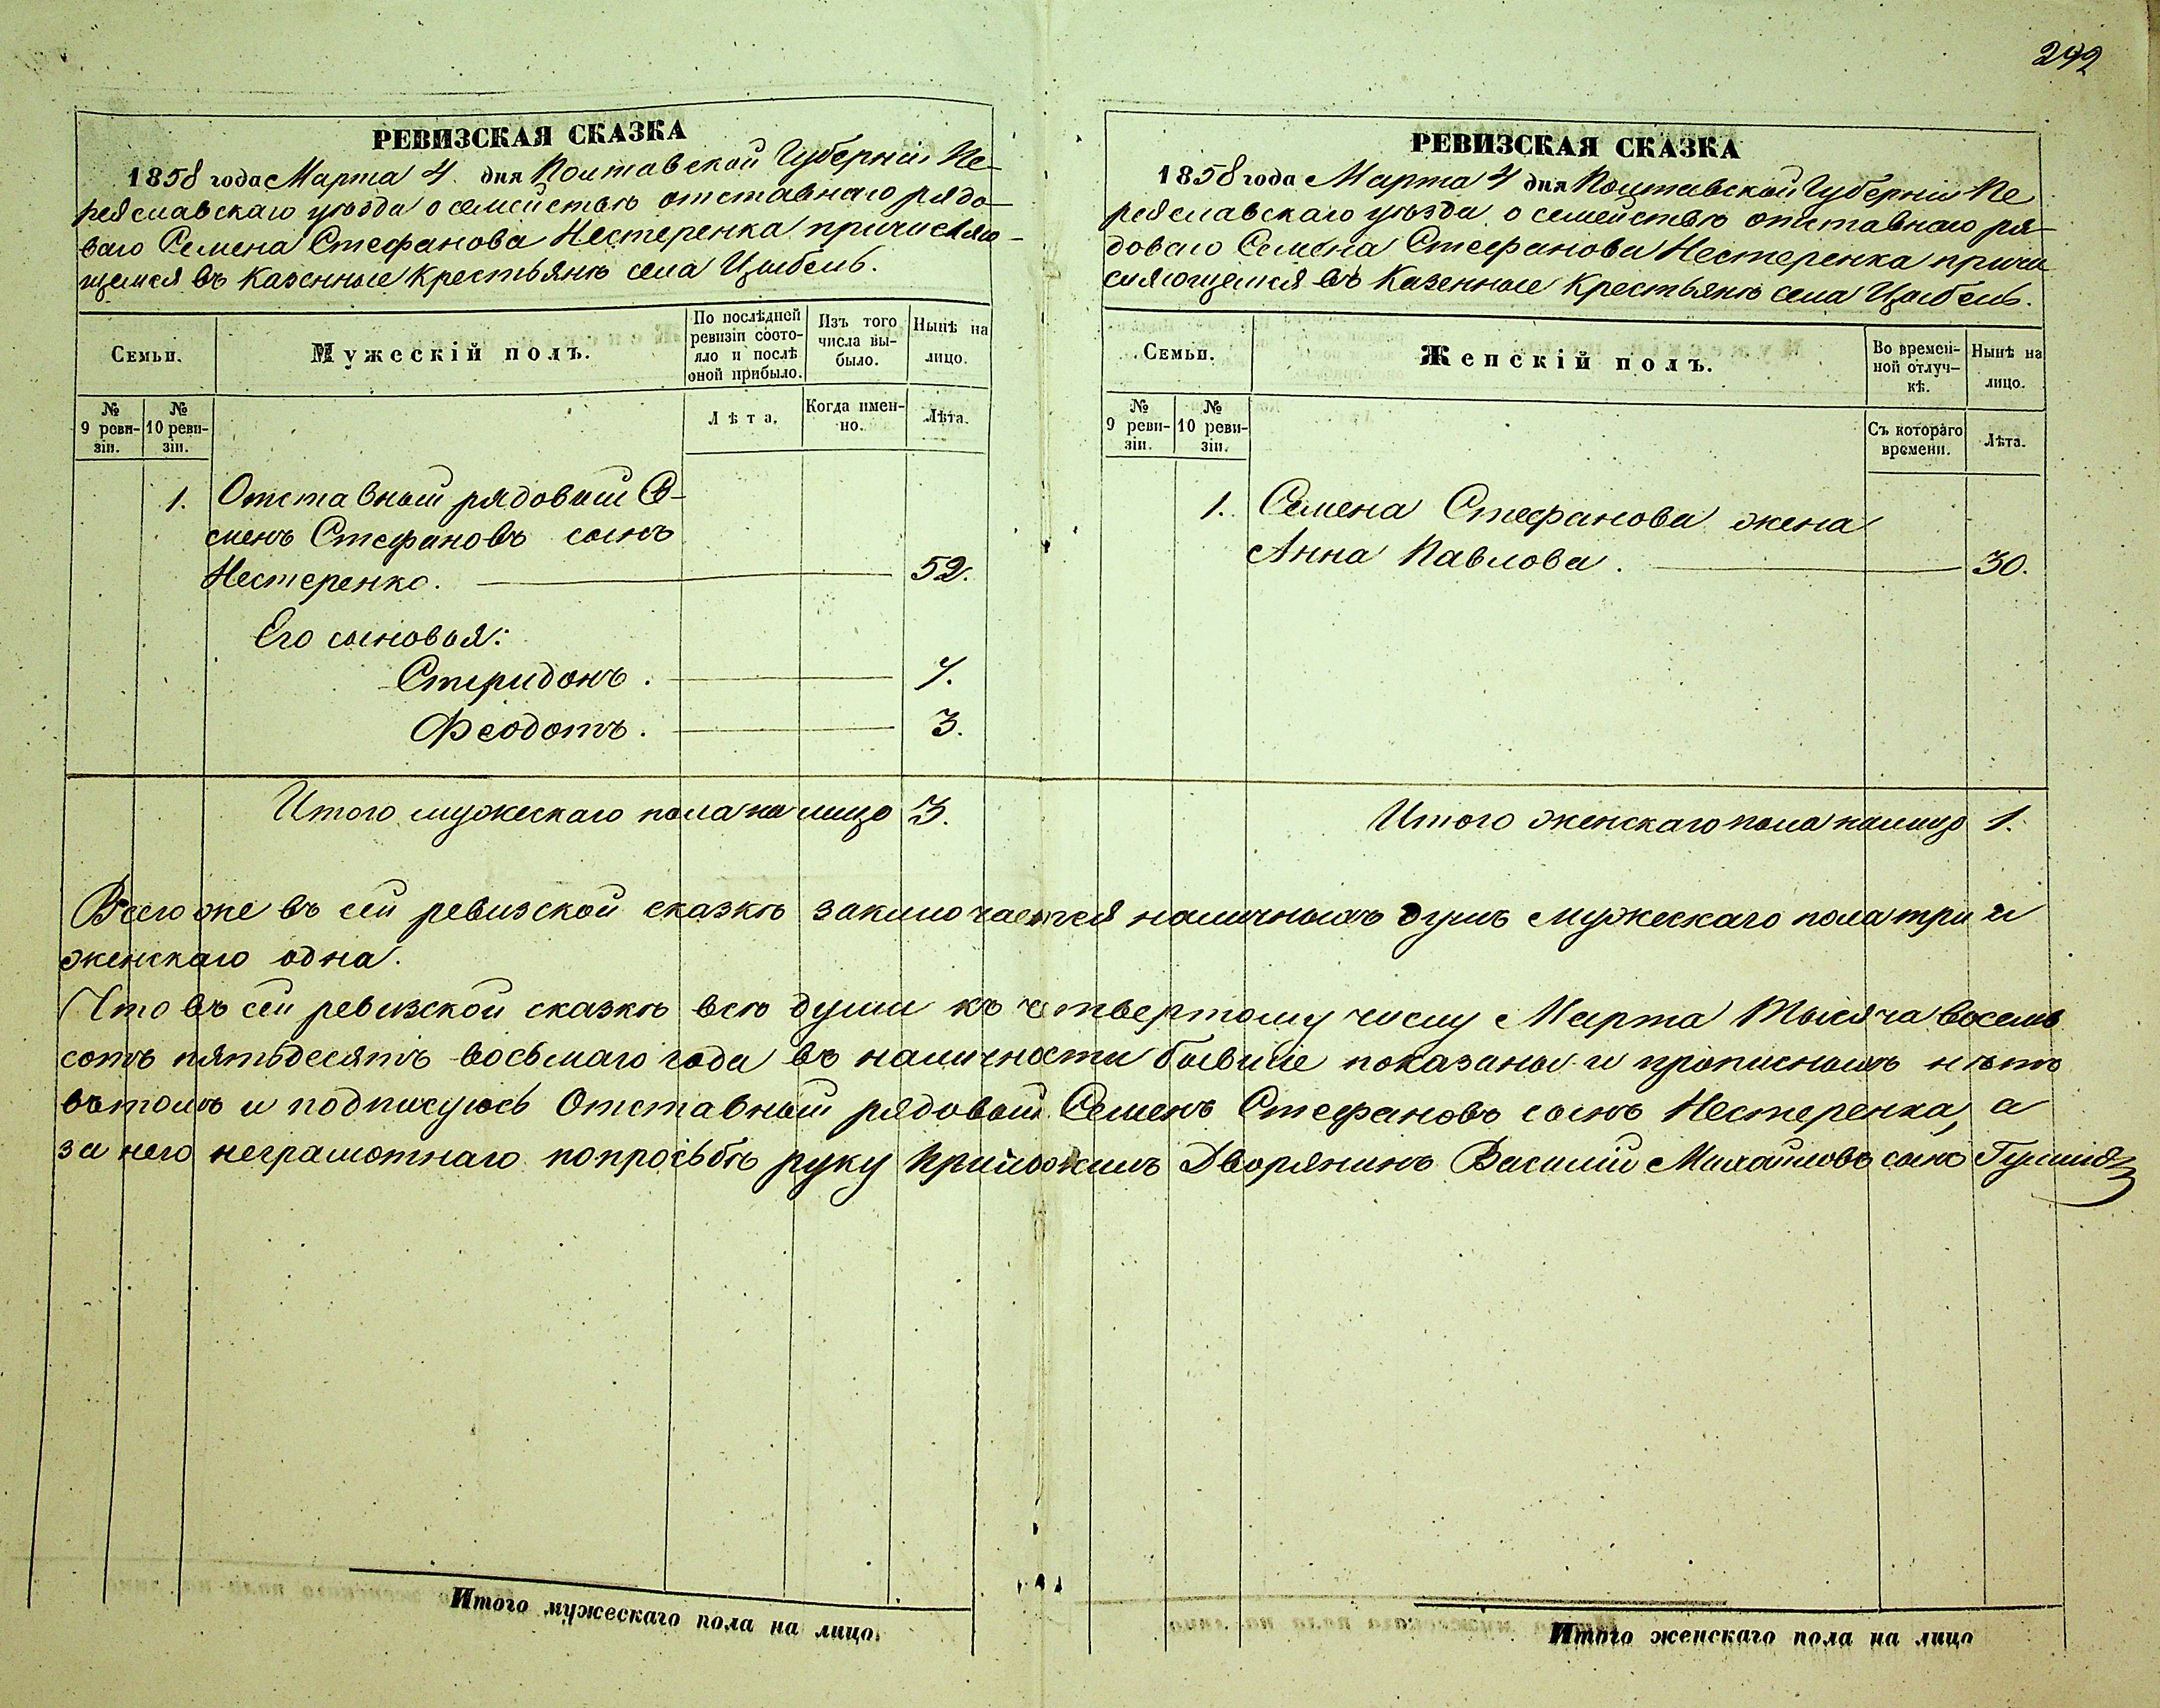 292
РЕВИЗСКАЯ СКАЗКА
1858 года Марта 4 дня Полтавской Губерніи Пе-
реяславскаго уѣзда о семействѣ отставнаго рядо-
ваго Семена Стефанова Нестеренка причисляю-
щемся въ казенные крестьяне села Цыбель.
Семьи.
Мужескій полъ.
По послѣдней ревизіи состо-яло и послѣ оной прибыло.
Изъ того числа вы-было.
Нынѣ на лицо.
№ 9 реви-зіи.
№ 10 реви-зіи.
Лѣта.
Когда имен-но.
Лѣта.
1. Отставный рядовый Се-
менъ Стефановъ сынъ
Нестеренко. 52.
Его сыновья:
Спиридонъ. 7.
Феодотъ. 3.
Итого мужескаго пола на лицо 3.
РЕВИЗСКАЯ СКАЗКА
1858 года Марта 4 дня Полтавской Губерніи Пе
реяславскаго уѣзда о семействѣ отставнаго ря-
доваго Семена Стефанова Нестеренка причи
сляющемся въ казенные крестьяне села Цыбель.
Семьи.
Женскій полъ.
Во времен-ной отлуч-кѣ.
Нынѣ на лицо.
№ 9 реви-зіи.
№ 10 реви-зіи.
Съ котораго времени.
Лѣта.
1. Семена Стефанова жена
Анна Павлова. 30.
Итого женскаго пола налицо 1.
Всего же въ сей ревизской сказкѣ заключается наличныхъ душъ мужескаго пола три и
женскаго одна.
Что въ сей ревизской сказкѣ всѣ души къ четвертому числу Марта тысяча восемь
сотъ пятьдесятъ восьмаго года въ наличности бывшіе показаны и прописныхъ нѣтъ
въ томъ и подписуюсь Отставный рядовый Семенъ Стефановъ сынъ Нестеренка, а
за него неграмотнаго по просьбѣ руку приложилъ Дворянинъ Василій Михайловъ сынъ
Итого мужескаго пола на лицо
Итого женскаго пола на лицо